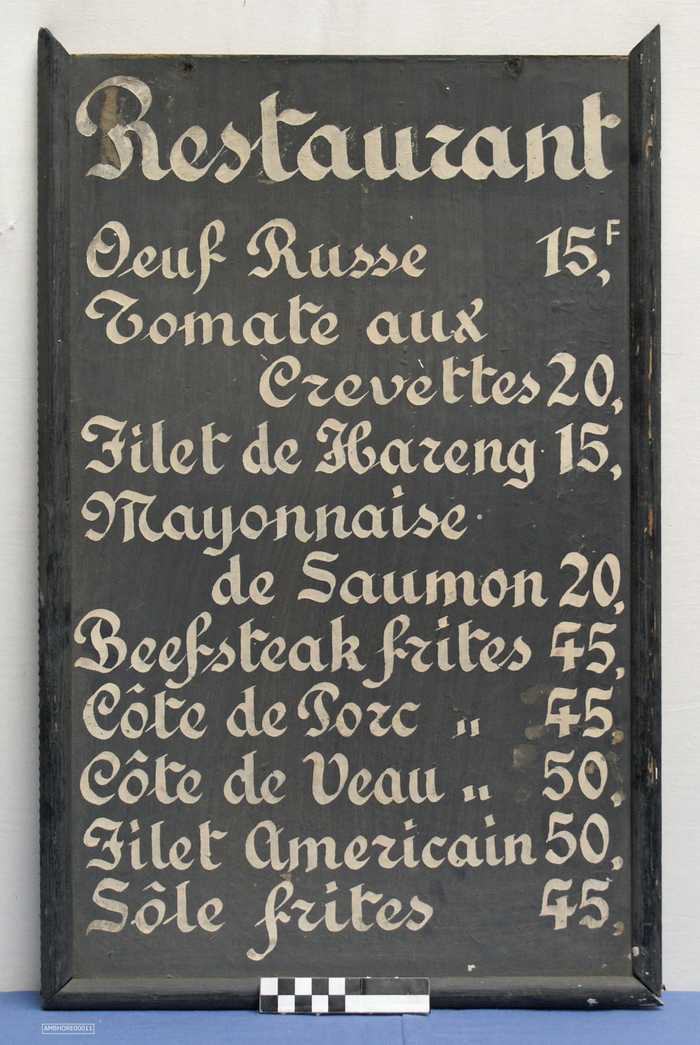 Restaurant
Oeuf Russe 15,F
Tomate aux
Crevettes 20,
Filet de Hareng 15,
Mayonnaise
de Saumon 20,
Beefsteak frites 45,
Côte de Porc " 45,
Côte de Veau " 50,
Filet Americain 50,
Sôle frites 45,
AMBHORE00011